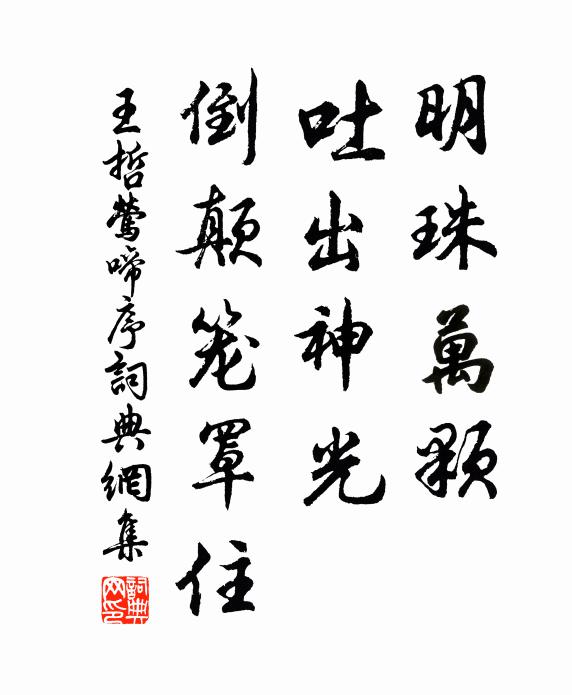 明珠萬顆
吐出神光
倒顛笼罩住
王哲鶯啼序詞典網集
詞典网印